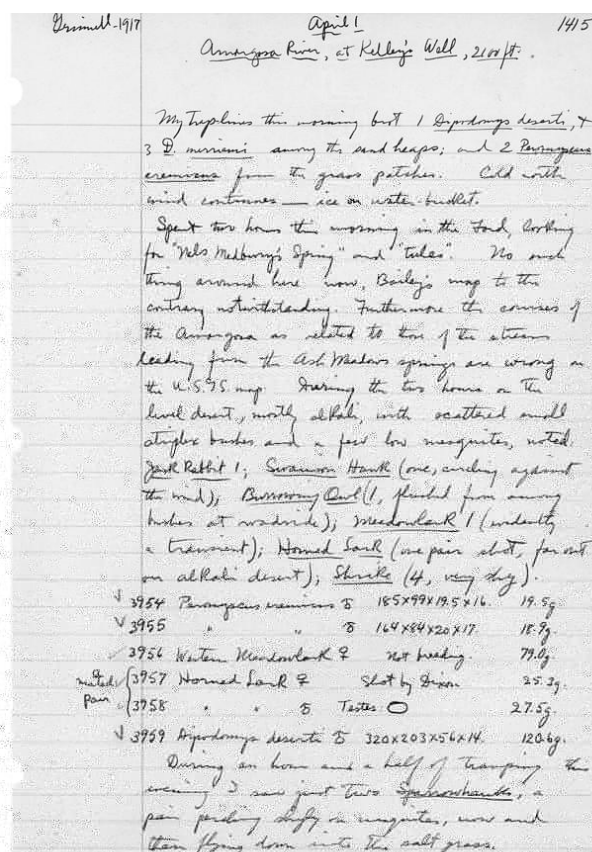 Grinnell-1917 April 1 1415
Amargosa River, at Kelley's Well, 2100 ft.
My traplines this morning brot 1 Dipodomys deserti, &
3 D. merriami among the sand heaps; and 2 Peromyscus
eremicus from the grass patches. Cold north
wind continues — ice on water-bucket.
Spent two hours this morning in the Ford, looking
for "Nels Medbury's Spring" and "tules". No such
thing around here now, Bailey's map to the
contrary notwithstanding. Furthermore the courses of
the Amargosa as related to those of the streams
leading from the Ash Meadows springs are wrong on
the U.S.G.S. map. During the two hours on the
level desert, mostly alkali, with scattered small
atriplex bushes and a few low mesquites, noted:
Jack Rabbit 1; Swainson Hawk (one, circling against
the wind); Burrowing Owl (1, flushed from among
bushes at roadside); Meadowlark 1 (evidently
a transient); Horned Lark (one pair shot, far out
on alkali desert); Shrike (4, very shy).
✓ 3954 Peromyscus eremicus ♂ 185x99x19.5x16. 19.5g.
✓ 3955 " " ♂ 164x84x20x17. 18.9g.
✓ 3956 Western Meadowlark ♀ Not breeding. 79.0g.
a mated pair { ✓ 3957 Horned Lark ♀ Shot by Dixon 25.3g.
✓ 3958 " " ♂ Testes O 27.5g.
✓ 3959 Dipodomys deserti ♂ 320x203x56x14. 120.6g.
During an hour and a half of tramping this
evening I saw just two Sparrowhawks, a
pair perching shyly on mesquites, now and
then flying down into the salt grass.